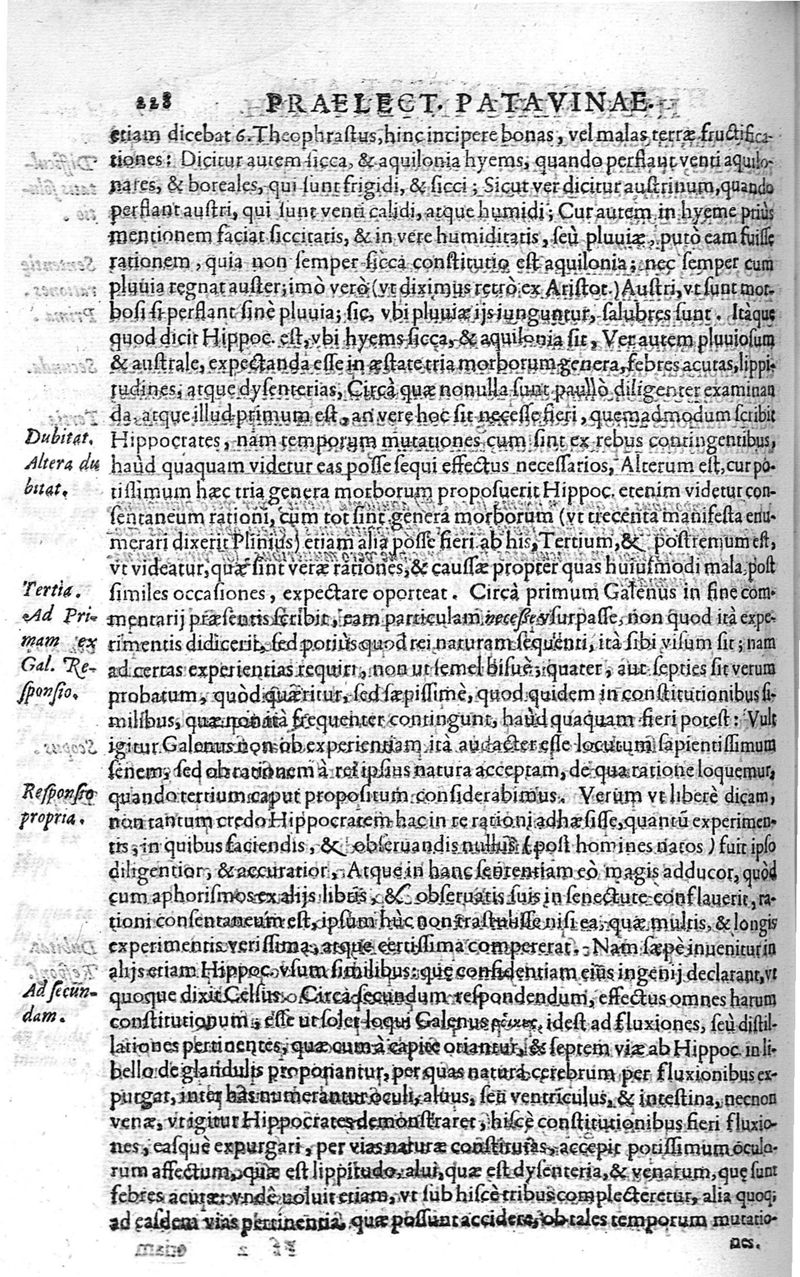 228 PRAELECT. PATAVINAE.
etiam dicebat 6. Theophrastus, hinc incipere bonas, vel malas terræ fructifica-
tiones: Dicitur autem sicca, & aquilonia hyems, quando perflant venti aquilo-
nares, & boreales, qui sunt frigidi, & sicci; Sicut ver dicitur austrinum, quando
perflant austri, qui sunt venti calidi, atque humidi; Cur autem in hyeme priùs
mentionem faciat siccitatis, & in vere humiditatis, seù pluviæ, putò eam fuisse
rationem, quia non semper sicca constitutio est aquilonia; nec semper cum
pluvia regnat auster; imò verò (vt diximus retrò ex Aristot.) Austri, vt sunt mor-
bosi si perflant sinè pluvia; sic, vbi pluviæ ijs iunguntur, salubres sunt. Itàque
quod dicit Hippoc. est, vbi hyems sicca, & aquilonia sit, Ver autem pluviosum
& australe, expectanda esse in æstate tria morborum genera, febres acutas, lippi-
tudines, atque dysenterias, Circà quæ nonulla sunt paullò diligenter examinan
da, atque illud primum est, an verè hoc sit necesse fieri, quemadmodum scribit
Dubitat. Hippocrates, nàm temporum mutationes cum sint ex rebus contingentibus,
Altera du haùd quaquam videtur eas posse sequi effectus necessarios, Alterum est, cur po-
bitat. tissimum hæc tria genera morborum proposuerit Hippoc. etenim videtur con-
sentaneum rationi, cùm tot sint genera morborum (vt trecenta manifesta enu-
merari dixerit Plinius) etiam alia posse fieri ab his, Tertium, & postremum est,
vt videatur, quæ sint veræ rationes, & caussæ propter quas huiusmodi mala, post
Tertia. similes occasiones, expectare oporteat. Circà primum Galenus in fine com-
Ad Pri- mentarij præsentis scribit, eam particulam necesse vsurpasse, non quod ità expe-
mam ex rimentis didicerit, sed potiùs quod rei naturam sequenti, ità sibi visum sit; nam
Gal. Re- ad certas experientias requiri, non ut semel bisuè; quater, aut septies sit verum
sponsio. probatum, quòd quæritur, sed sæpissimè, quod quidem in constitutionibus si-
milibus, quæ non ità frequenter contingunt, haùd quaquam fieri potest: Vult
igitur Galenus non ob experientiam ità audacter esse locutum sapientissimum
senem, sed ob rationem à rei ipsius natura acceptam, de qua ratione loquemur,
Responsio quando tertium caput propositum considerabimus. Verùm vt liberè dicam,
propria. non tantum credo Hippocratem hac in re rationi adhæsisse, quantũ experimen-
tis, in quibus faciendis, & observandis nullus (post homines natos) fuit ipso
diligentior, & accuratior, Atque in hanc sententiam eò magis adducor, quòd
cum aphorismos ex alijs libris, & observatis suis in senectute conflauerit, ra-
tioni consentaneum est, ipsum hùc non trastulisse nisi ea, quæ multis, & longis
experimentis verissima, atque certissima compererat. Nam sæpè inuenitur in
alijs etiam Hippoc. vsum similibus: quę confidentiam eius ingenij declarant, vt
Ad secun- quoque dixit Celsus. Circà secundum respondendum, effectus omnes harum
dam. constitutionum, esse ut solet loqui Galenus idest ad fluxiones, seù distil-
lationes pertinentes, quæ cum à capite oriantur, & septem viæ ab Hippoc. in li-
bello de glandulis proponantur, per quas natura cerebrum per fluxionibus ex-
purgat, inter has numerantur oculi, aluus, seu ventriculus, & intestina, necnon
venæ, vt igitur Hippocrates demonstraret, hiscè constitutionibus fieri fluxio-
nes, easque expurgari, per vias naturæ constitutas, accepit potissimum oculo-
rum affectum, quæ est lippitudo, alui, quæ est dysenteria, & venarum, quę sunt
febres acutæ: vndè uoluit etiam, vt sub hiscè tribus complecteretur, alia quoq;
ad easdem vias pertinentia, quæ possunt accidere, ob tales temporum mutatio-
nes.